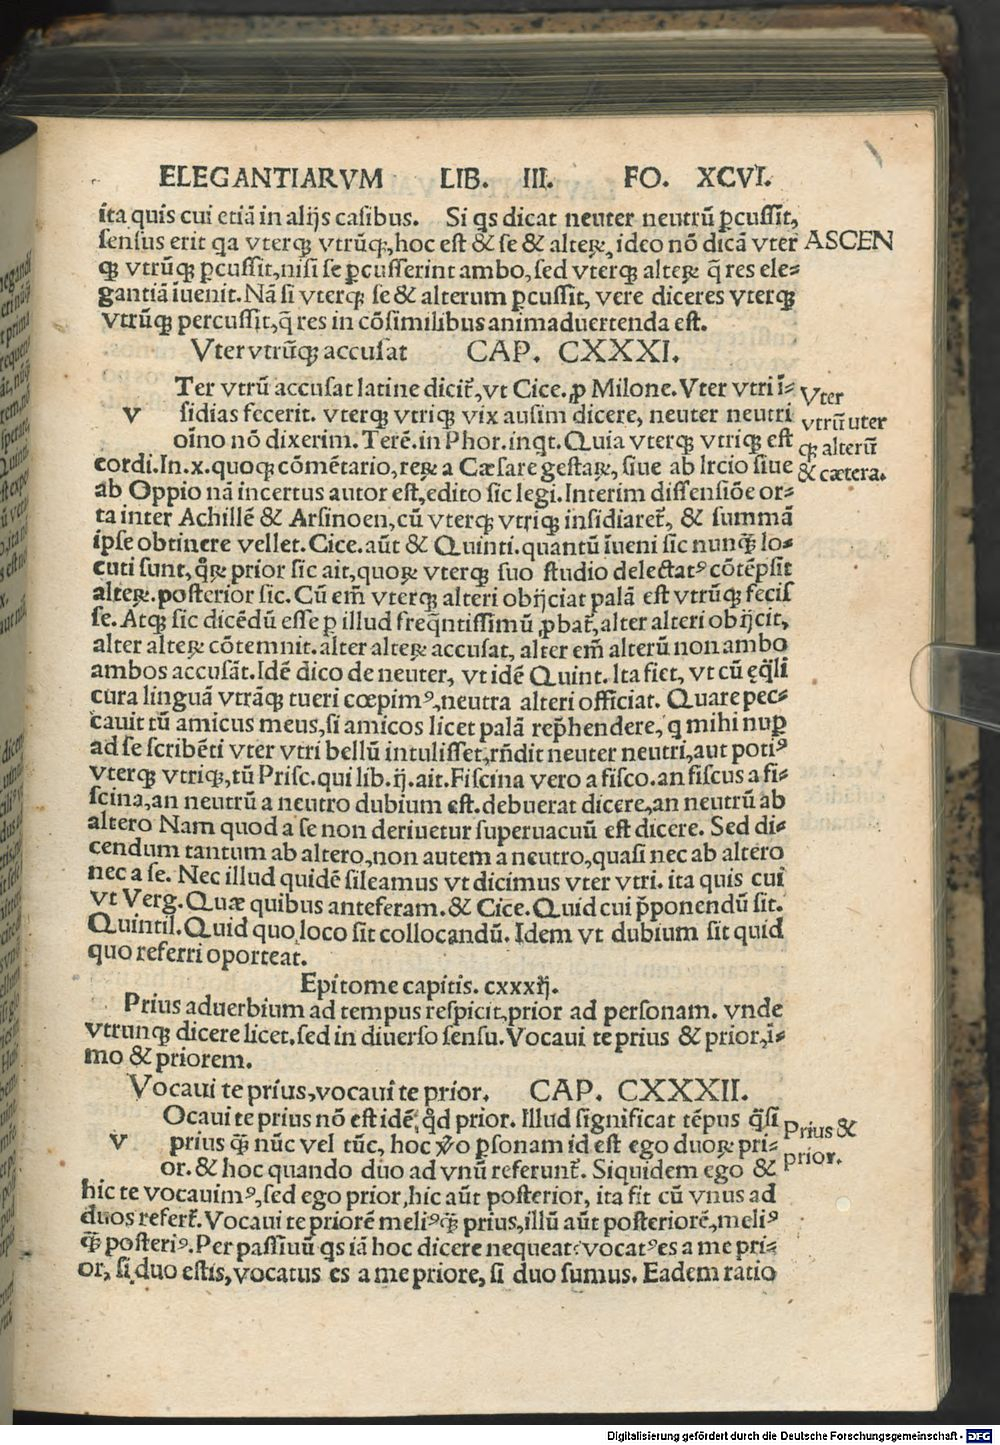 ELEGANTIARVM LIB. III. FO. XCVI.
ita quis cui etiã in alijs casibus. Si qs dicat neuter neutrũ ꝑcussit,
sensus erit qa vterqꝫ vtrũqꝫ, hoc est & se & alteꝝ, ideo nõ dicã vter
ASCEN
qꝫ vtrũqꝫ ꝑcussit, nisi se ꝑcusserint ambo, sed vterqꝫ alteꝝ q̃ res ele-
gantiã iuenit. Nã si vterqꝫ se & alterum ꝑcussit, vere diceres vterqꝫ
vtrũqꝫ percussit, q̃ res in cõsimilibus animaduertenda est.
Vter vtrũqꝫ accusat CAP. CXXXI.
Ter vtrũ accusat latine dicit̃, vt Cice. ꝓ Milone. Vter vtri ĩ-
V sidias fecerit. vterqꝫ vtriqꝫ vix ausim dicere, neuter neutri
oĩno nõ dixerim. Terẽ. in Phor. inqt. Quia vterqꝫ vtriqꝫ est
Vter
vtrũ uter
qꝫ alterũ
& cætera.
cordi. In. x. quoqꝫ cõmẽtario, reꝝ a Cæsare gestaꝝ, siue ab Ircio siue
ab Oppio nã incertus autor est, edito sic legi. Interim dissensiõe or-
ta inter Achillẽ & Arsinoen, cũ vterqꝫ vtriqꝫ insidiaret̃, & summã
ipse obtinere vellet. Cice. aũt & Quinti. quantũ ĩueni sic nunq̃ lo-
cuti sunt, q̃ꝝ prior sic ait, quoꝝ vterqꝫ suo studio delectatꝰ cõtẽpsit
alteꝝ. posterior sic. Cũ em̃ vterqꝫ alteri obijciat palã est vtrũqꝫ fecis
se. Atqꝫ sic dicẽdũ esse ꝑ illud freq̃ntissimũ ꝓbat̃, alter alteri obijcit,
alter alteꝝ cõtemnit. alter alteꝝ accusat, alter em̃ alterũ non ambo
ambos accusãt. Idẽ dico de neuter, vt idẽ Quint. Ita fiet, vt cũ ęq̃li
cura linguã vtrãqꝫ tueri cœpimꝰ, neutra alteri officiat. Quare pec-
cauit tũ amicus meus, si amicos licet palã rep̃hendere, q mihi nuꝑ
ad se scribẽti vter vtri bellũ intulisset, rñdit neuter neutri, aut potiꝰ
vterqꝫ vtriqꝫ, tũ Prisc. qui lib. ij. ait. Fiscina vero a fisco. an fiscus a fi-
scina, an neutrũ a neutro dubium est. debuerat dicere, an neutrũ ab
altero Nam quod a se non deriuetur superuacuũ est dicere. Sed di-
cendum tantum ab altero, non autem a neutro, quasi nec ab altero
nec a se. Nec illud quidẽ sileamus vt dicimus vter vtri. ita quis cui
vt Verg. Quæ quibus anteferam. & Cice. Quid cui p̃ponendũ sit.
Quintil. Quid quo loco sit collocandũ. Idem vt dubium sit quid
quo referri oporteat.
Epitome capitis. cxxxij.
Prius aduerbium ad tempus respicit, prior ad personam. vnde
vtrunqꝫ dicere licet. sed in diuerso sensu. Vocaui te prius & prior, ĩ-
mo & priorem.
Vocaui te prius, vocaui te prior. CAP. CXXXII.
Ocaui te prius nõ est idẽ, qđ prior. Illud significat tẽpus q̃si
V prius q̃ nũc vel tũc, hoc ṽo ꝑsonam id est ego duoꝝ pri-
or. & hoc quando duo ad vnũ referunt̃. Siquidem ego &
Prius &
prior.
hic te vocauimꝰ, sed ego prior, hic aũt posterior, ita fit cũ vnus ad
duos refert̃. Vocaui te priorẽ meliꝰ q̃ prius, illũ aũt posteriorẽ, meliꝰ
q̃ posteriꝰ. Per passiuũ qs iã hoc dicere nequeat: vocatꝰ es a me pri-
or, si duo estis, vocatus es a me priore, si duo sumus. Eadem ratio
Digitalisierung gefördert durch die Deutsche Forschungsgemeinschaft - DFG